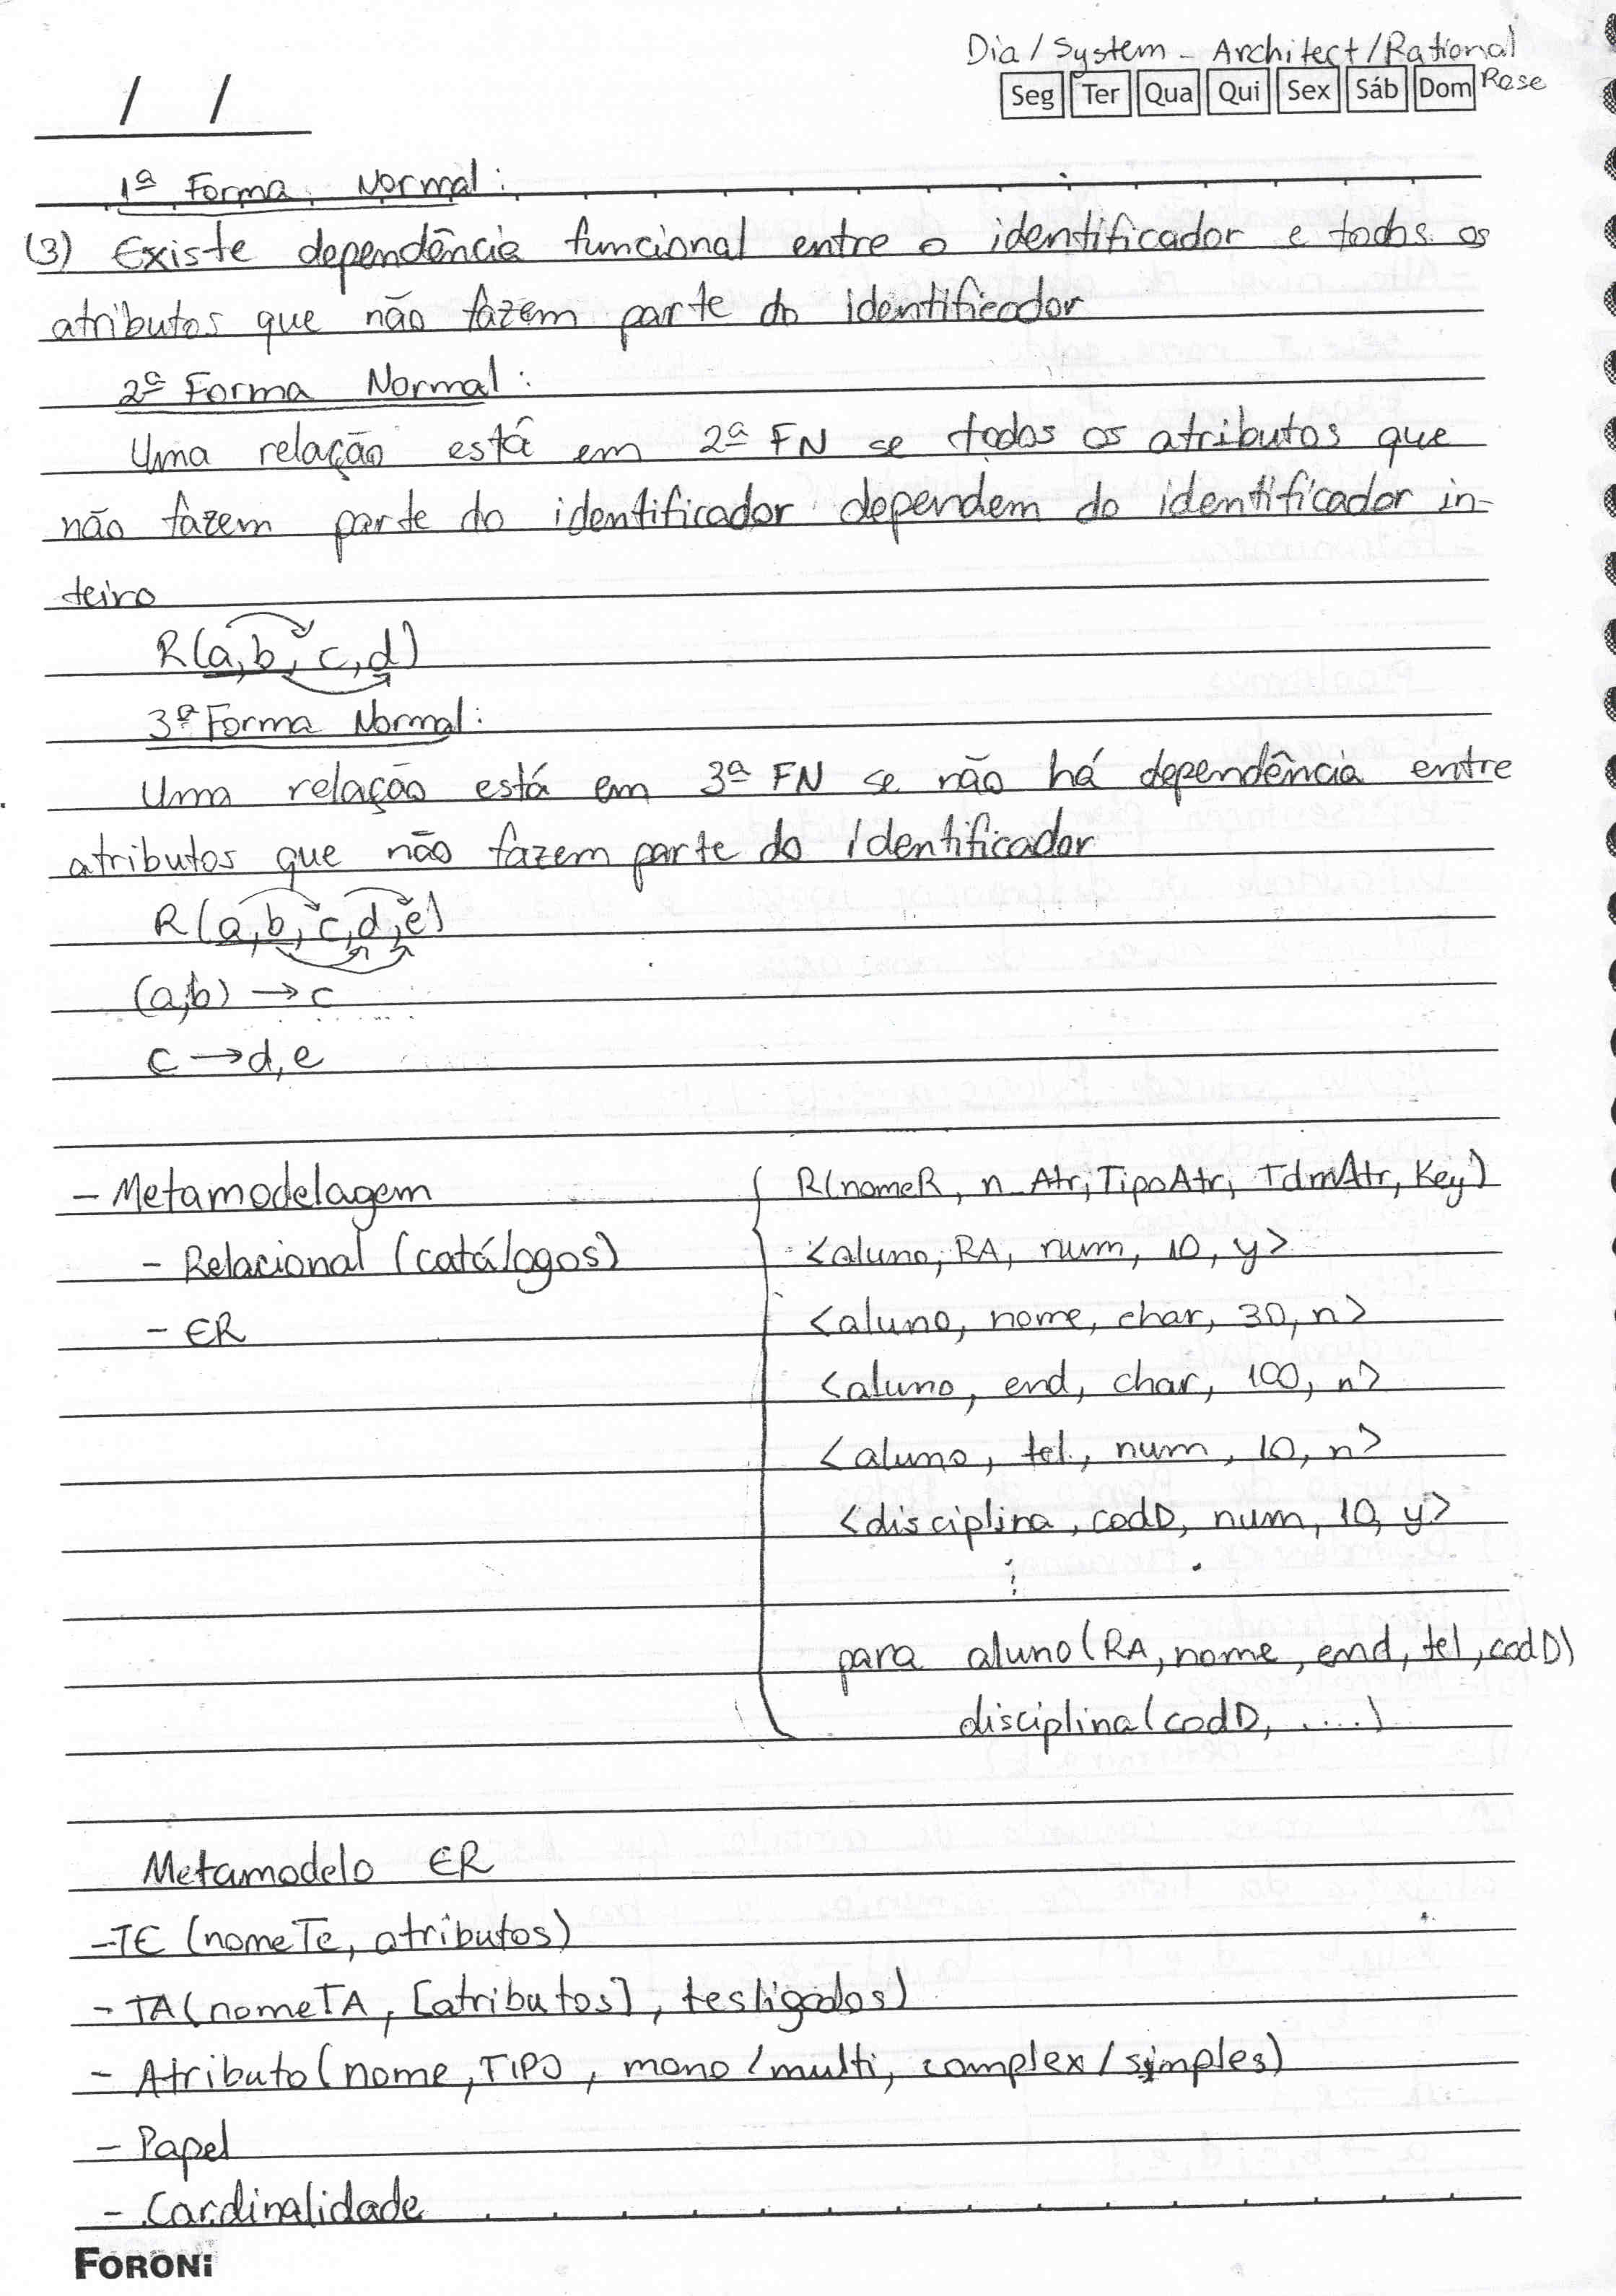 Dia / System - Architect / Rational
Rose
/ /
Seg Ter Qua Qui Sex Sáb Dom
1ª Forma Normal:
(3) Existe dependência funcional entre o identificador e todos os
atributos que não fazem parte do identificador
2ª Forma Normal:
Uma relação está em 2ª FN se todos os atributos que
não fazem parte do identificador dependem do identificador in-
teiro
R(a, b, c, d)
3ª Forma Normal:
Uma relação está em 3ª FN se não há dependência entre
atributos que não fazem parte do identificador
R(a, b, c, d, e)
(a,b) → c
c → d, e
- Metamodelagem
- Relacional (catálogos)
- ER
R(nomeR, n_Atr, TipoAtr, TdmAtr, Key)
<aluno, RA, num, 10, y>
<aluno, nome, char, 30, n>
<aluno, end, char, 100, n>
<aluno, tel., num, 10, n>
<disciplina, codD, num, 10, y>
⋮
para aluno(RA, nome, end, tel, codD)
disciplina(codD, ....)
Metamodelo ER
- TE (nomeTe, atributos)
- TA (nomeTA, [atributos], tesligados)
- Atributo (nome, TIPO, mono/multi, complex/simples)
- Papel
- Cardinalidade
FORONi